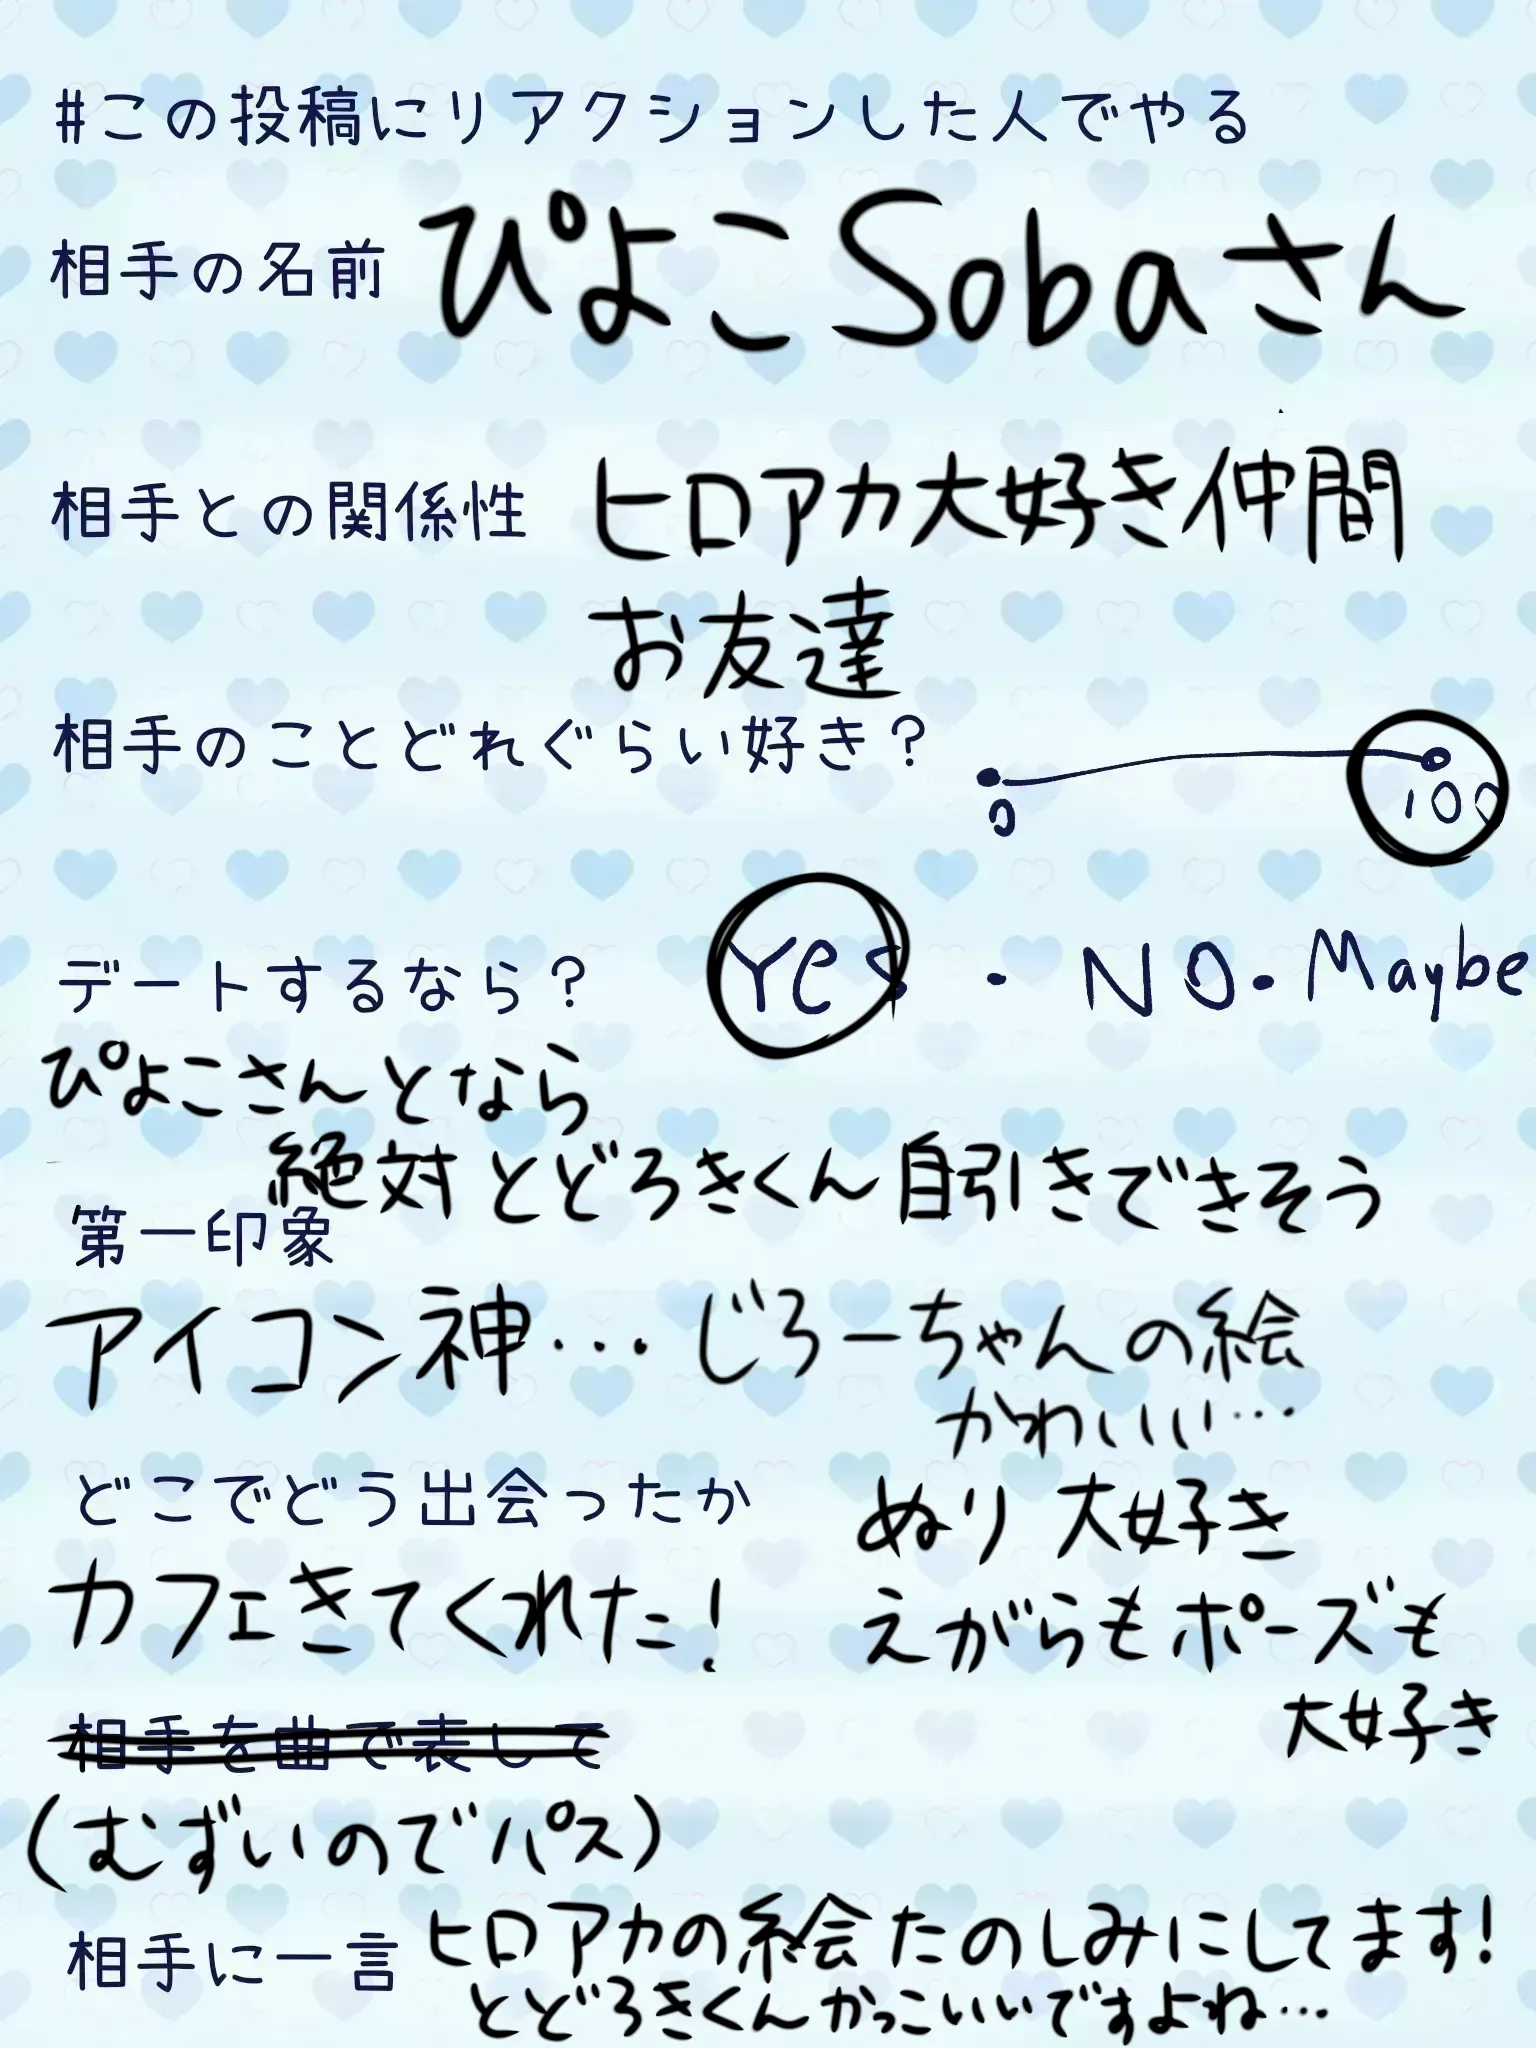 #この投稿にリアクションした人でやる
相手の名前 ぴよこSobaさん
相手との関係性 ヒロアカ大好き仲間
お友達
相手のことどれぐらい好き？ 0 100
デートするなら？ Yes・NO・Maybe
ぴよこさんとなら
絶対とどろきくん自引きできそう
第一印象
アイコン神…じろーちゃんの絵
かわいいい…
ぬり大好き
えがらもポーズも
大好き
どこでどう出会ったか
カフェきてくれた！
相手を曲で表して
(むずいのでパス)
相手に一言 ヒロアカの絵たのしみにしてます！
とどろきくんかっこいいですよね…